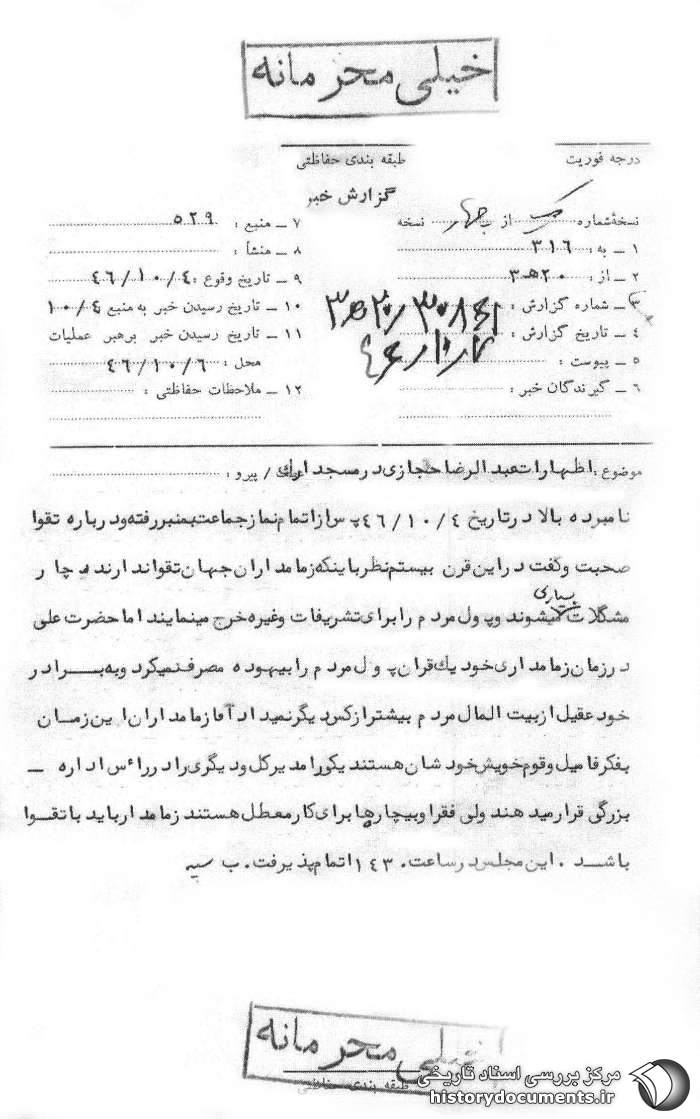 خیلی محرمانه
درجه فوریت
طبقه بندی حفاظتی
گزارش خبر
نسخهٔ شماره یک از چهار نسخه
۱ ــ به : ۳۱۶
۲ ــ از : ۲۰ هـ ۳
۳ ــ شماره گزارش :
۴ ــ تاریخ گزارش :
۵ ــ پیوست :
۶ ــ گیرندگان خبر :
۷ ــ منبع : ۵۲۹
۸ ــ منشأ :
۹ ــ تاریخ وقوع : ۴۶/۱۰/۴
۱۰ ــ تاریخ رسیدن خبر به منبع ۱۰/۴
۱۱ ــ تاریخ رسیدن خبر برهبر عملیات
محل : ۴۶/۱۰/۶
۱۲ ــ ملاحظات حفاظتی :
موضوع : اظهارات عبدالرضا حجازی در مسجد ارک / پیرو :
نامبرده بالا در تاریخ ۴۶/۱۰/۴ پس از اتمام نماز جماعت بمنبر رفته و درباره تقوا
صحبت و گفت در این قرن بیستم نظر باینکه زمامداران جهان تقوا ندارند دچار
مشگلات بسیاری میشوند و پول مردم را برای تشریفات و غیره خرج مینمایند اما حضرت علی
در زمان زمامداری خود یک قران پول مردم را بیهوده مصرف نمیکرد و به برادر
خود عقیل از بیت المال مردم بیشتر از کس دیگر نمیداد آقا زمامداران این زمان
بفکر فامیل و قوم خویش خودشان هستند یکی را مدیر کل و دیگری را در رأس اداره ــ
بزرگی قرار میدهند ولی فقرا و بیچاره‌ها برای کار معطل هستند زمامدار باید با تقوا
باشد . این مجلس در ساعت ۱۴۳۰ اتمام پذیرفت . ب
خیلی محرمانه
طبقه بندی حفاظتی
مرکز بررسی اسناد تاریخی
historydocuments.ir